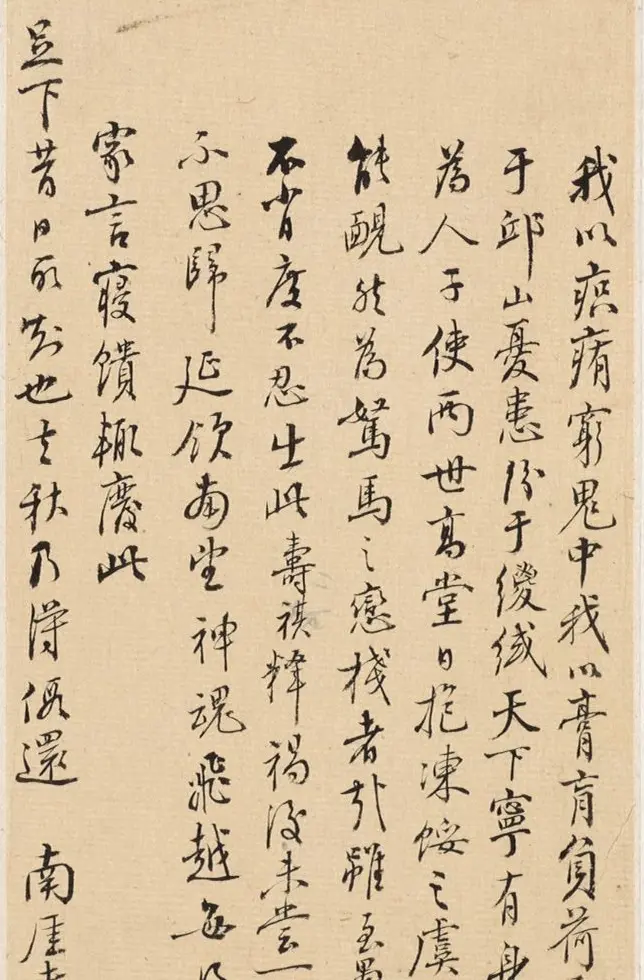 我以痁痏窮鬼中我以膏肓負荷
于邱山憂患份于纆緎天下寧有身
為人子使兩世高堂日抱凍餒之虞
能靦然為駑馬之戀棧者哉雖至愚
不肖度不忍出此壽祺釋褐後未嘗一
不思歸延領南望神魂飛越每得
家言寢饋輒廢此
足下昔日所知也去秋乃得假還 南厓